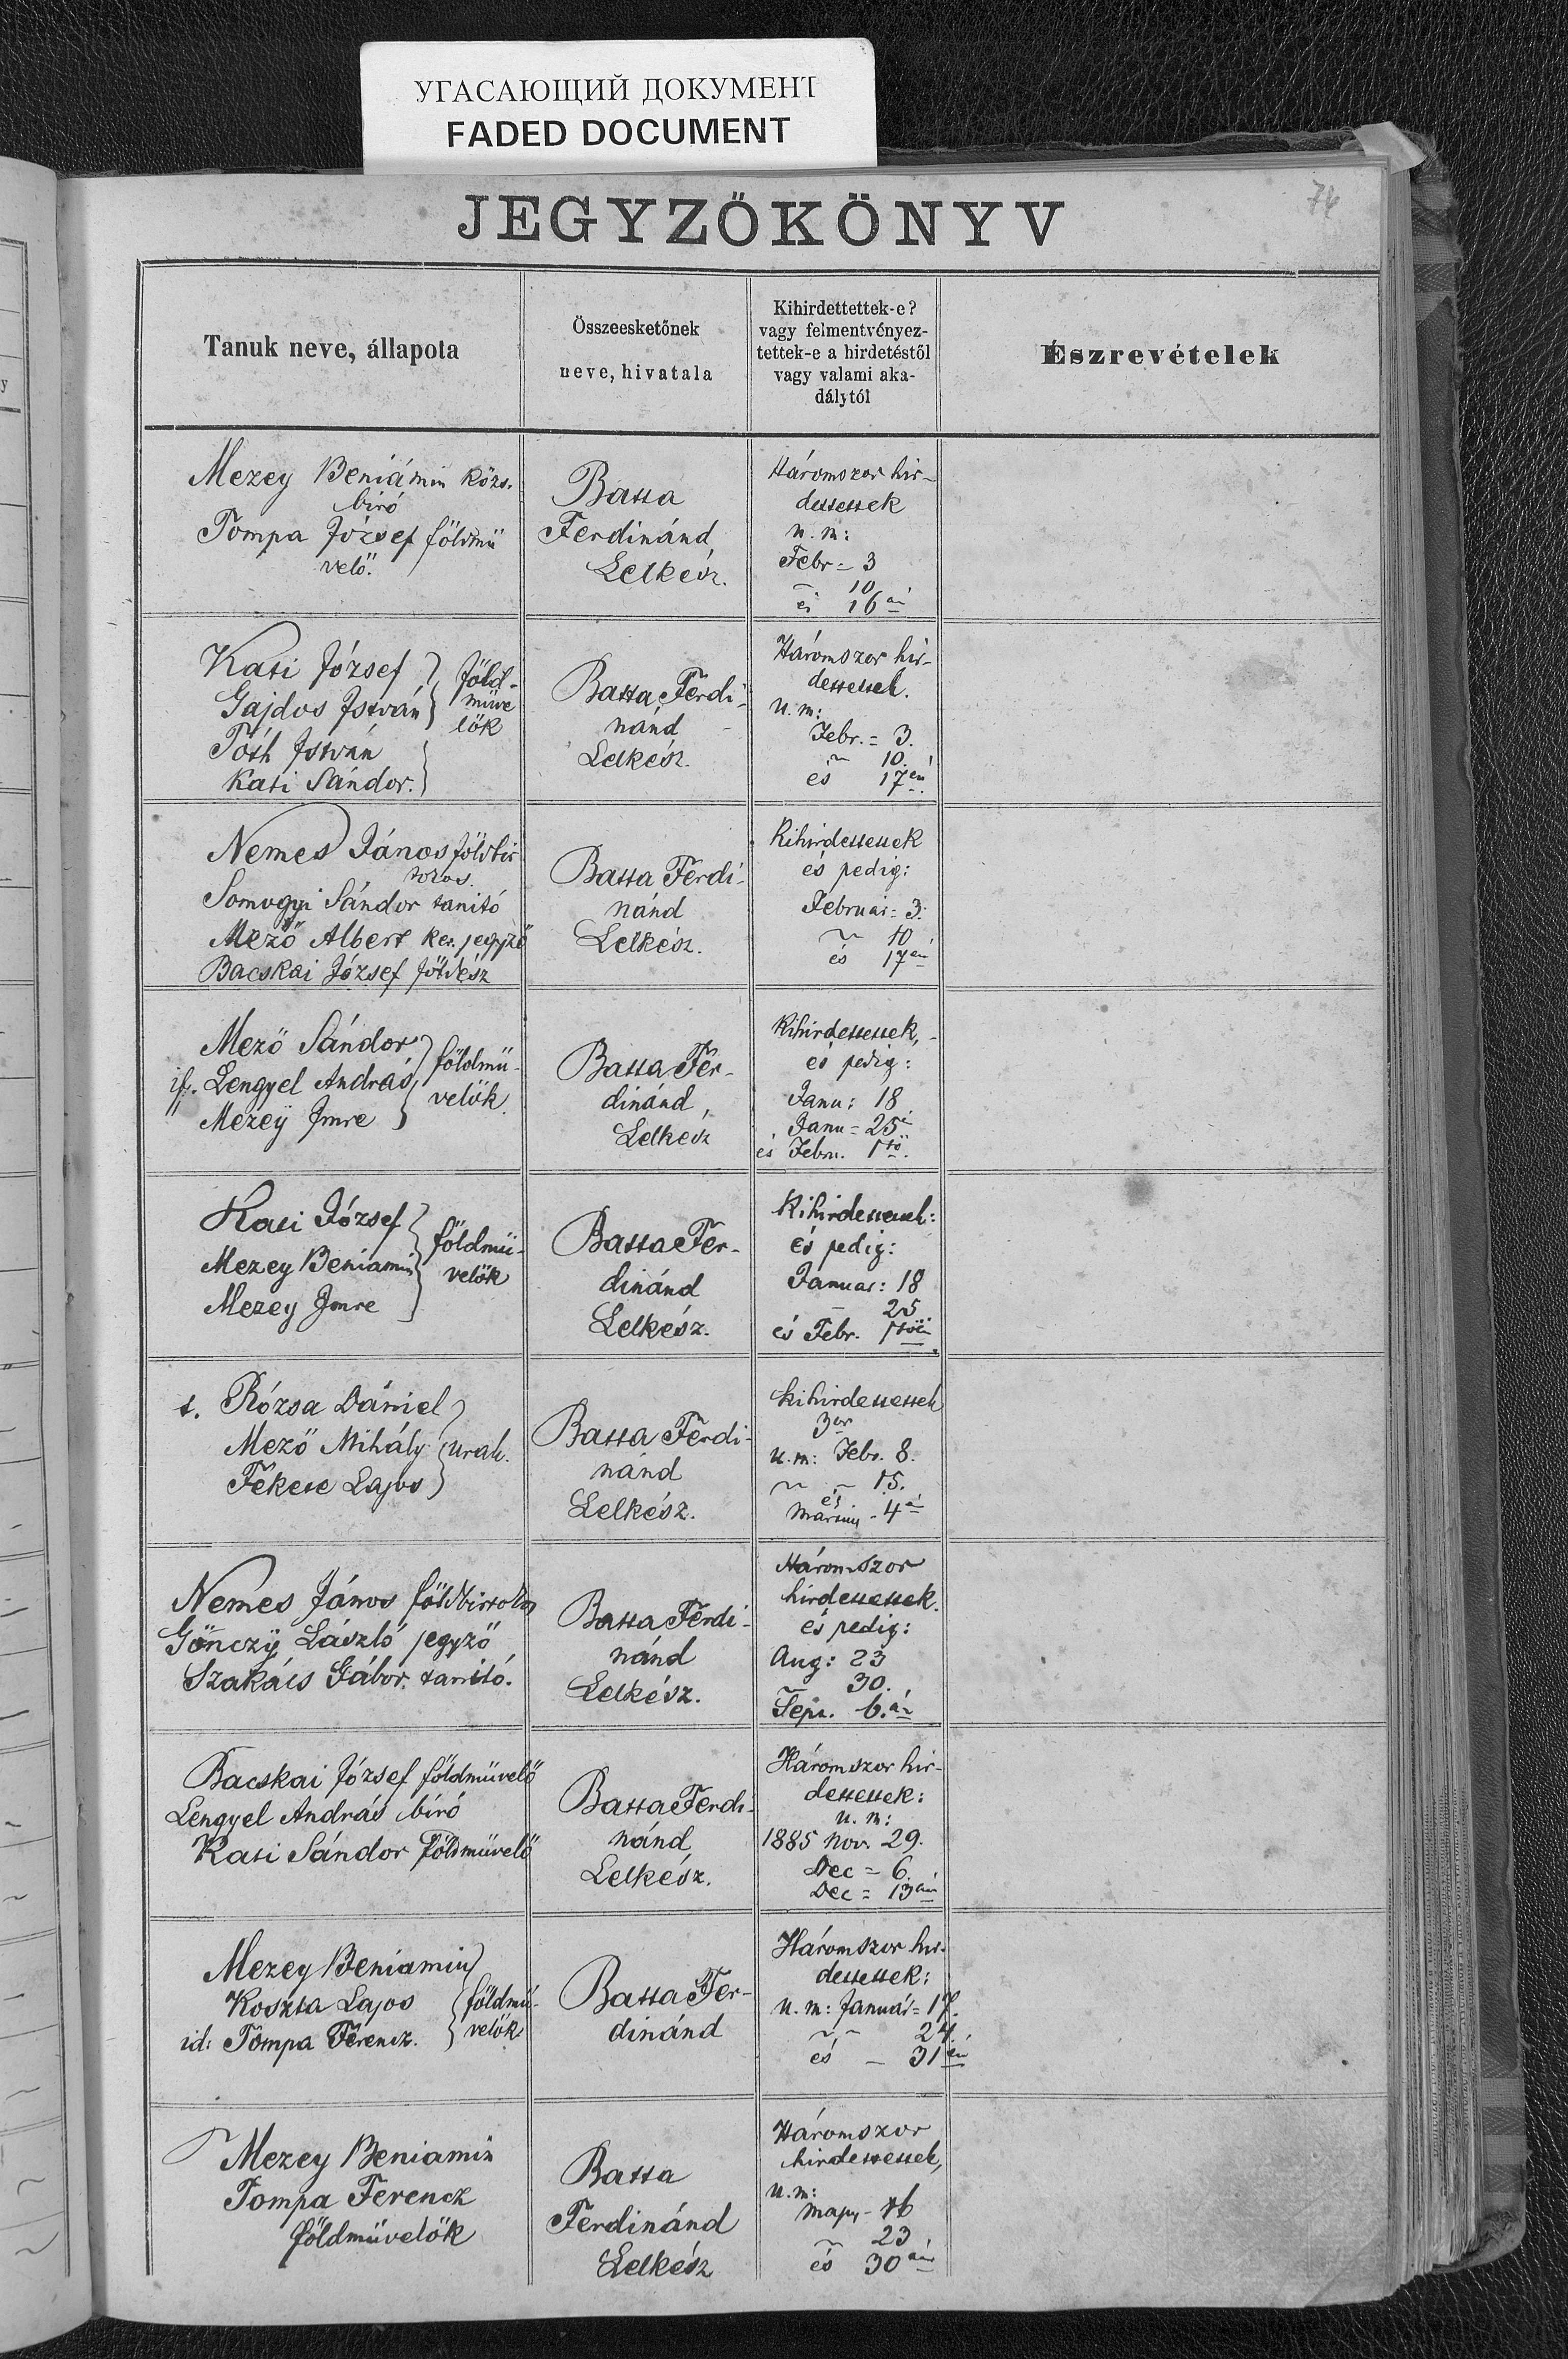 УГАСАЮЩИЙ ДОКУМЕНТ
FADED DOCUMENT
74
JEGYZŐKÖNYV
Tanuk neve, állapota
Összeesketőnek
neve, hivatala
Kihirdettettek-e?
vagy felmentvényez-
tettek-e a hirdetéstől
vagy valami aka-
dálytól
Észrevételek
Mezey Beniámin közs.
biró
Tompa József földmű
velő.
Batta
Ferdinánd
Lelkész.
Háromszor hir-
dettettek
u. m:
Febr = 3
~ 10
és 16án
Kati József
Gajdos István
Tóth István
Kati Sándor.
föld-
műve
lők
Batta Ferdi-
nánd
Lelkész.
Háromszor hir-
dettettek.
u. m:
Febr. = 3.
~ 10.
és 17én.
Nemes János földbir
tokos.
Somogyi Sándor tanitó
Mező Albert ker. jegyző
Bacskai József földész
Batta Ferdi-
nánd
Lelkész.
Kihirdettettek
és pedig:
Február = 3.
~ 10
és 17én
Mező Sándor
if. Lengyel András
Mezey Imre
földmű-
velők
Batta Fer-
dinánd,
Lelkész
Kihirdettettek,
és pedig:
Janu: 18
Janu = 25
és Febru. 1ső.
Kati József
Mezey Beniamin
Mezey Imre
földmü-
velők
Batta Fer-
dinánd
Lelkész.
Kihirdettettek:
és pedig:
Januar: 18
— 25.
és Febr. 1sőn
t. Rózsa Dániel
Mező Mihály
Fekete Lajos
urak.
Batta Ferdi-
nánd
Lelkész.
kihirdettettek
3or
u. m: Febr. 8.
~ ~ 15.
és
Március - 4én
Nemes János földbirtokos
Gönczÿ László jegyző
Szakács Gábor. tanitó.
Batta Ferdi-
nánd
Lelkész.
Háromszor
hirdettettek.
és pedig:
Aug: 23
~ 30.
Sept. 6.án
Bacskai József földmüvelő
Lengyel András biró
Kati Sándor földmüvelő
Batta Ferdi-
nánd
Lelkész.
Háromszor hir-
dettettek:
u. m:
1885 Nov. 29.
Dec = 6.
Dec = 13án
Mezey Beniamin
Koszta Lajos
id: Tompa Ferencz.
földmü-
velők
Batta Fer-
dinánd
Háromszor hir-
dettettek:
u. m: Január = 17.
~ ~ 24.
és — 31én
Mezey Beniamin
Tompa Ferencz
földmüvelők
Batta
Ferdinánd
Lelkész
Háromszor
hirdettettek,
u. m:
Máju - 16
~ 23
és 30án